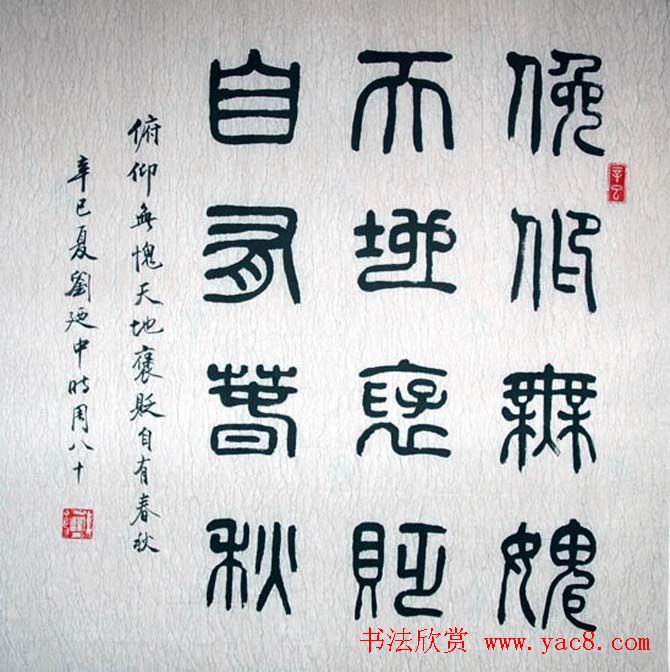 俛仰無媿
天地褒貶
自有春秋
俯仰無愧天地褒貶自有春秋
辛巳夏劉廼中時周八十
辛巳
书法欣赏 www.yac8.com